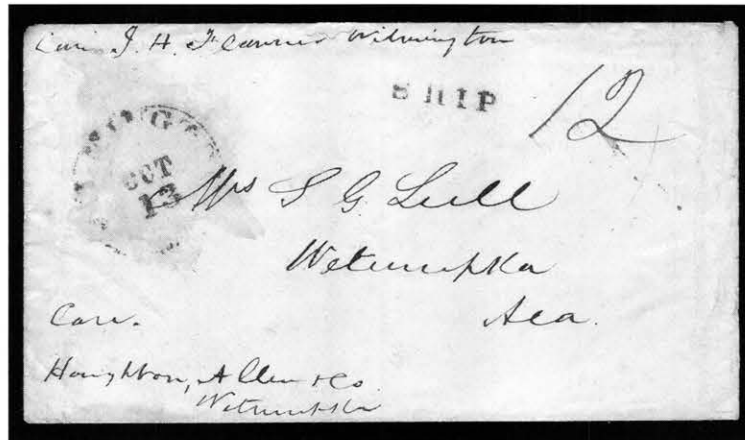 Care J. H. Flanner Wilmington
SHIP
12
OCT
13
Mrs S G Lull
Wetumpka
Ala.
Care.
Houghton, Allen & Co.
Wetumpka